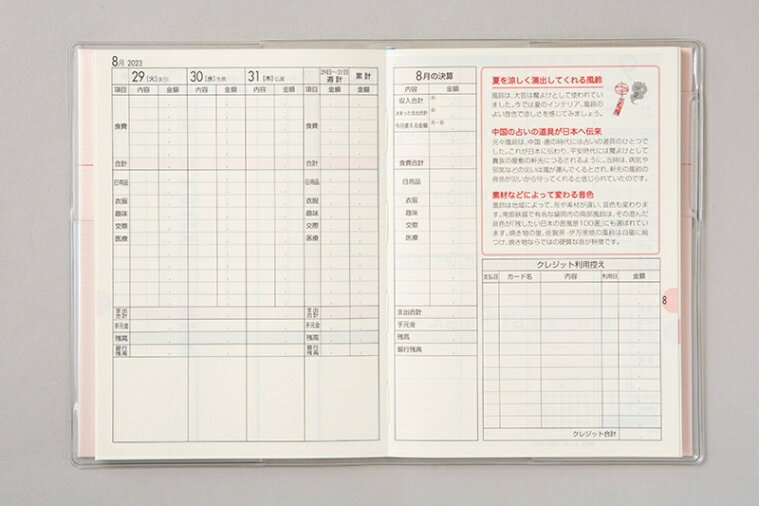 8月 2023
29 [火] 友引 30 [水] 先負 31 [木] 仏滅 29日〜31日 週計 累計
項目 内容 金額 内容 金額 内容 金額 項目 金額 金額
食費 食費
合計 合計
日用品 日用品
衣服 衣服
趣味 趣味
交際 交際
医療 医療
支出合計 支出合計
手元金 手元金
残高 残高
銀行残高 銀行残高
8月の決算
項目 内容 金額
収入合計
決まった支出合計
今月使える金額
食費合計
日用品
衣服
趣味
交際
医療
支出合計
手元金
残高
銀行残高
夏を涼しく演出してくれる風鈴
風鈴は、大昔は魔よけとして使われてい
ました。今では夏のインテリア。風鈴の
よい音色で涼しさを感じてみましょう。
中国の占いの道具が日本へ伝来
元々風鈴は、中国・唐の時代には占いの道具のひとつで
した。これが日本に伝わり、平安時代には魔よけとして
貴族の屋敷の軒先につるされるように。当時は、病気や
邪気などの災いは風が運んでくるとされ、軒先の風鈴の
音色が災いから守ってくれると信じられていたのです。
素材などによって変わる音色
風鈴は地域によって、形や素材が違い、音色も変わりま
す。南部鉄器で有名な盛岡市の南部風鈴は、その澄んだ
音色が「残したい日本の音風景100選」にも選ばれてい
ます。焼き物の里、佐賀県・伊万里焼の風鈴は白磁に絵
つけ。焼き物ならではの硬質な音が特徴です。
クレジット利用控え
支払日 カード名 内容 利用日 金額
クレジット合計
8